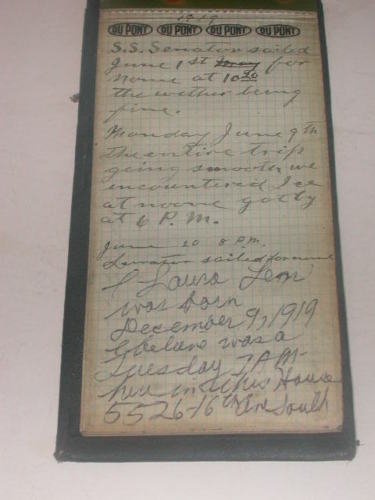 1919
DU PONT DU PONT DU PONT DU PONT
S.S. Senator sailed
June 1st for
Nome at 10 30
the wether being
fine.
Monday June 9th
the entire trip
going smooth we
encountered Ice
at nome got by
at 6 P.M.
June 20 8 P.M.
Senator sailed for nome
I Laura
was born
December 9, 1919
I believe was a
Tuesday 7 A M-
here in this House
5526-16th Ave South